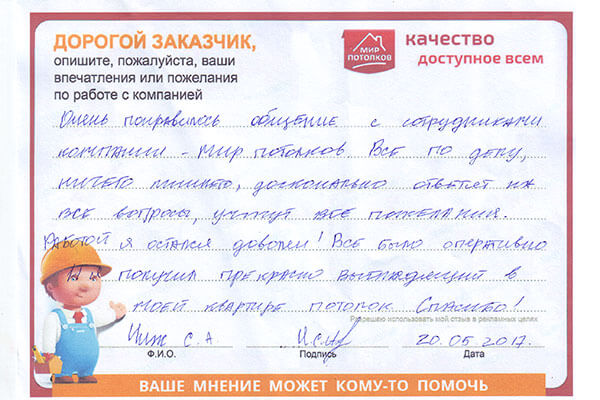 ДОРОГОЙ ЗАКАЗЧИК,
опишите, пожалуйста, ваши
впечатления или пожелания
по работе с компанией
МИР
ПОТОЛКОВ
качество
доступное всем
Очень понравилось общение с сотрудниками
компании - Мир потолков Все по делу,
ничего лишнего, досконально ответят на
все вопросы, учтут все пожелания.
Работой я остался доволен! Все было оперативно
получил прекрасно выглядящий в
моей квартире потолок Спасибо!
Разрешаю использовать мой отзыв в рекламных целях
Чиж С. А 20.05.2017.
Ф.И.О. Подпись Дата
ВАШЕ МНЕНИЕ МОЖЕТ КОМУ-ТО ПОМОЧЬ